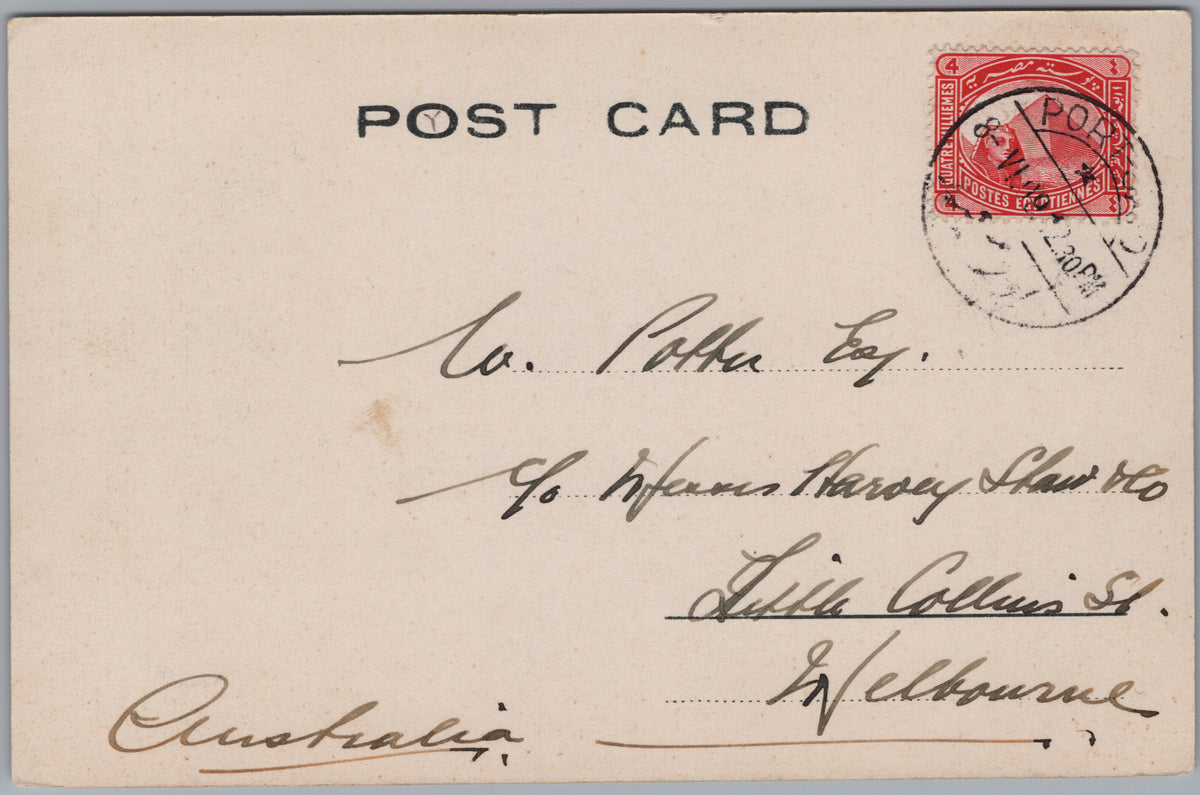 POST CARD
4
بوستة مصرية
QUATRE MILLIEMES
POSTES EGYPTIENNES
4
٤
٤
PORT
8 VI. 2.30 PM
W. Potter Esq.
c/o Messrs Harvey Shaw & Co
Little Collins St.
Melbourne
Australia